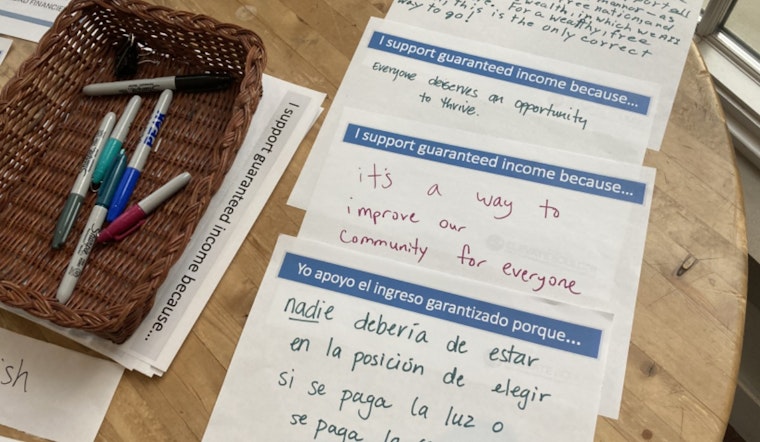 AD FINANCIE
wealth, in which we All
For a wealthy, free
this is the only correct
way to go!
I support guaranteed income because...
Everyone deserves an opportunity
to thrive.
I support guaranteed income because...
it's a way to
improve our
community for everyone
Yo apoyo el ingreso garantizado porque...
nadie debería de estar
en la posición de elegir
si se paga la luz o
se paga la
I support guaranteed income because...
ish